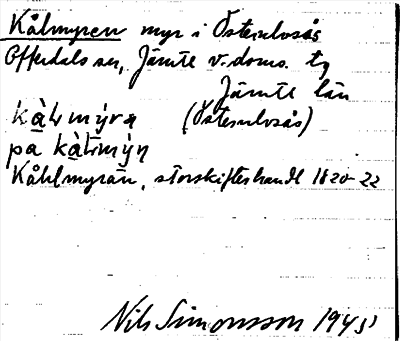 Kålmyren myr i Österulvsås
Offerdals sn, Jämtl v. doms. tg
Jämtl län
(Österulvsås)
på
Kåhlmyran, storskifteshandl 1820-22
Nils Simonsson 1945